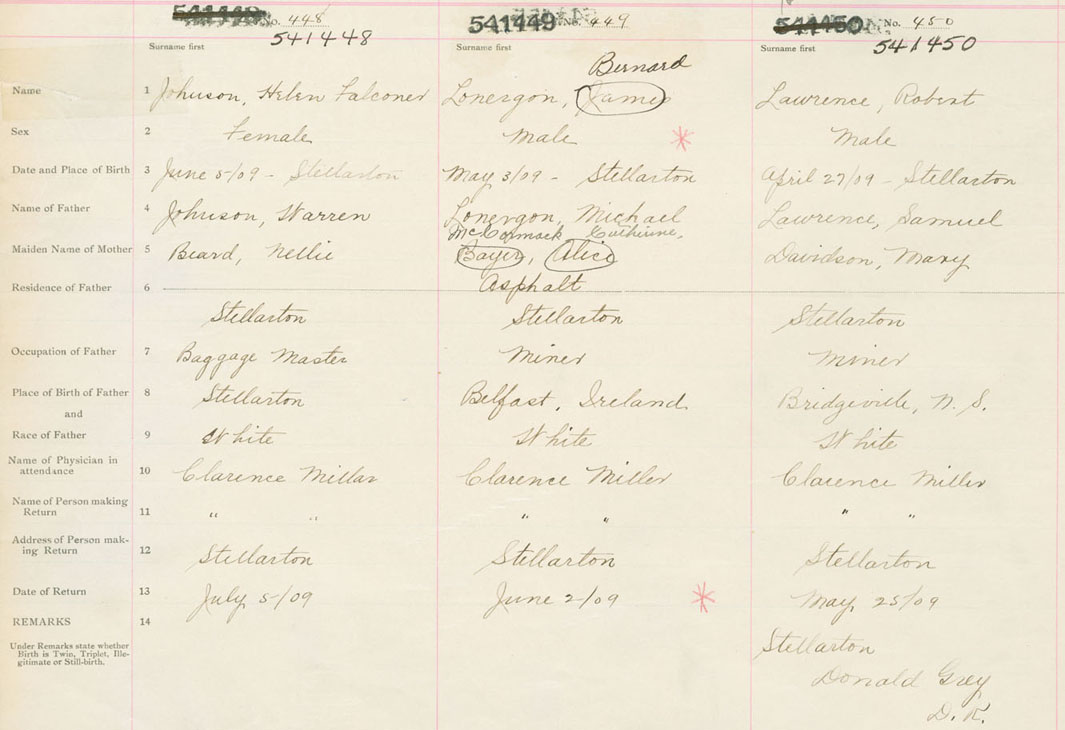 541448 No. 448 541449 No. 449 541450 No. 450
541448 541450
Surname first Surname first Surname first
Bernard
Name 1 Johnson, Helen Falconer Lonergon, James Lawrence, Robert
Sex 2 Female Male Male
Date and Place of Birth 3 June 5/09 - Stellarton May 3/09 - Stellarton April 27/09 - Stellarton
Name of Father 4 Johnson, Warren Lonergon, Michael Lawrence, Samuel
McCormack Catherine,
Maiden Name of Mother 5 Beard, Nellie Bayer, Alice Davidson, Mary
Residence of Father 6 Asphalt
Stellarton Stellarton Stellarton
Occupation of Father 7 Baggage Master Miner Miner
Place of Birth of Father 8 Stellarton Belfast, Ireland Bridgeville, N. S.
and
Race of Father 9 White White White
Name of Physician in
attendance 10 Clarence Millar Clarence Miller Clarence Miller
Name of Person making
Return 11 " " " " " "
Address of Person mak-
ing Return 12 Stellarton Stellarton Stellarton
Date of Return 13 July 5/09 June 2/09 May 25/09
REMARKS 14
Under Remarks state whether
Birth is Twin, Triplet, Ille-
gitimate or Still-birth.
Stellarton
Donald Grey
D. R.